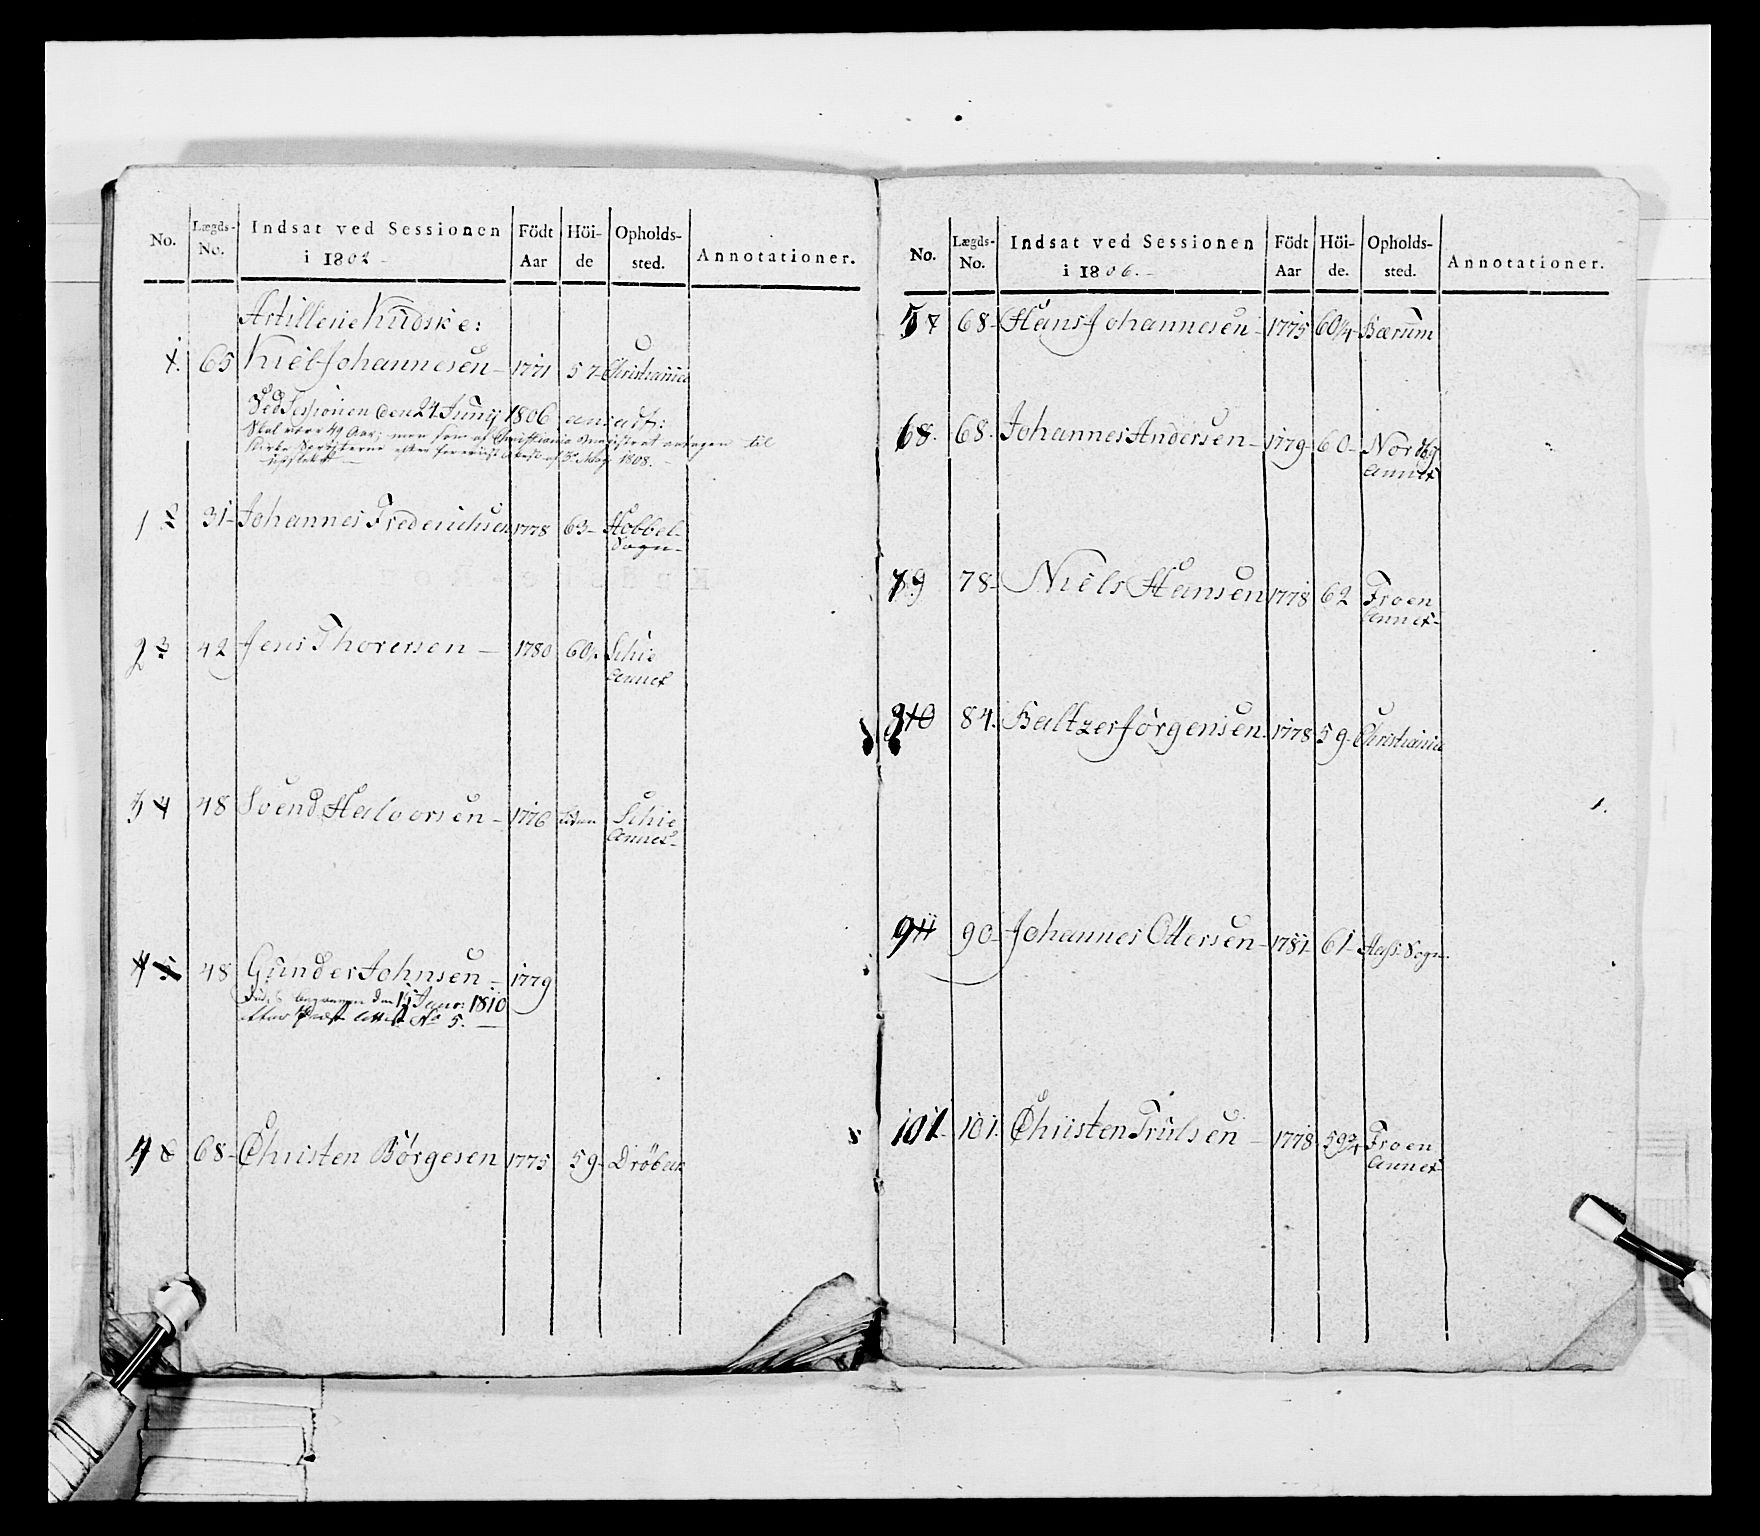 No. Lægds-No. Indsat ved Sessionen i 1802 - Födt Aar Höi-de Opholds-sted. Annotationer.
Artillerie Kudske:
1. 65 Kield Johannesen - 1771 57- Christiania
Ved Sessionen den 24 Junij 1806 ansadt:
Skal være 49 Aar; men som af Christiania Magistrat antagen til
1808.
1 2 31- Johannes Frederichsen 1778 63- Hobbel-
Sogn-
2 3 42 Jens Thoresen - 1780 60. Schie
Annex
3 4 48 Svend Halvorsen - 1776 Schie
Annex-
4 5 48 Gunder Johnsen - 1779
den 15 Janr: 1810
efter Præst Attest No 5. -
4 6 68- Christen Börgesen 1775 59- Dröbak
No. Lægds-No. Indsat ved Sessionen i 1806. - Födt Aar Höi-de. Opholds-sted. Annotationer.
5 7 68- Hans Johannesen - 1775 60 1/4 Bærum
6 8. 68. Johannes Andersen - 1779 60- Nordbÿ
Annex
7 9 78- Niels Hansen 1778 62 Froen
Annex-
8 10 84. Baltzer Jörgensen. 1778 59- Christiania
9 11 90- Johannes Ottersen - 1781- 61- Aass Sogn.
10 1. 101. Christen Trulsen - 1778 59 3/4 Froen
Annex